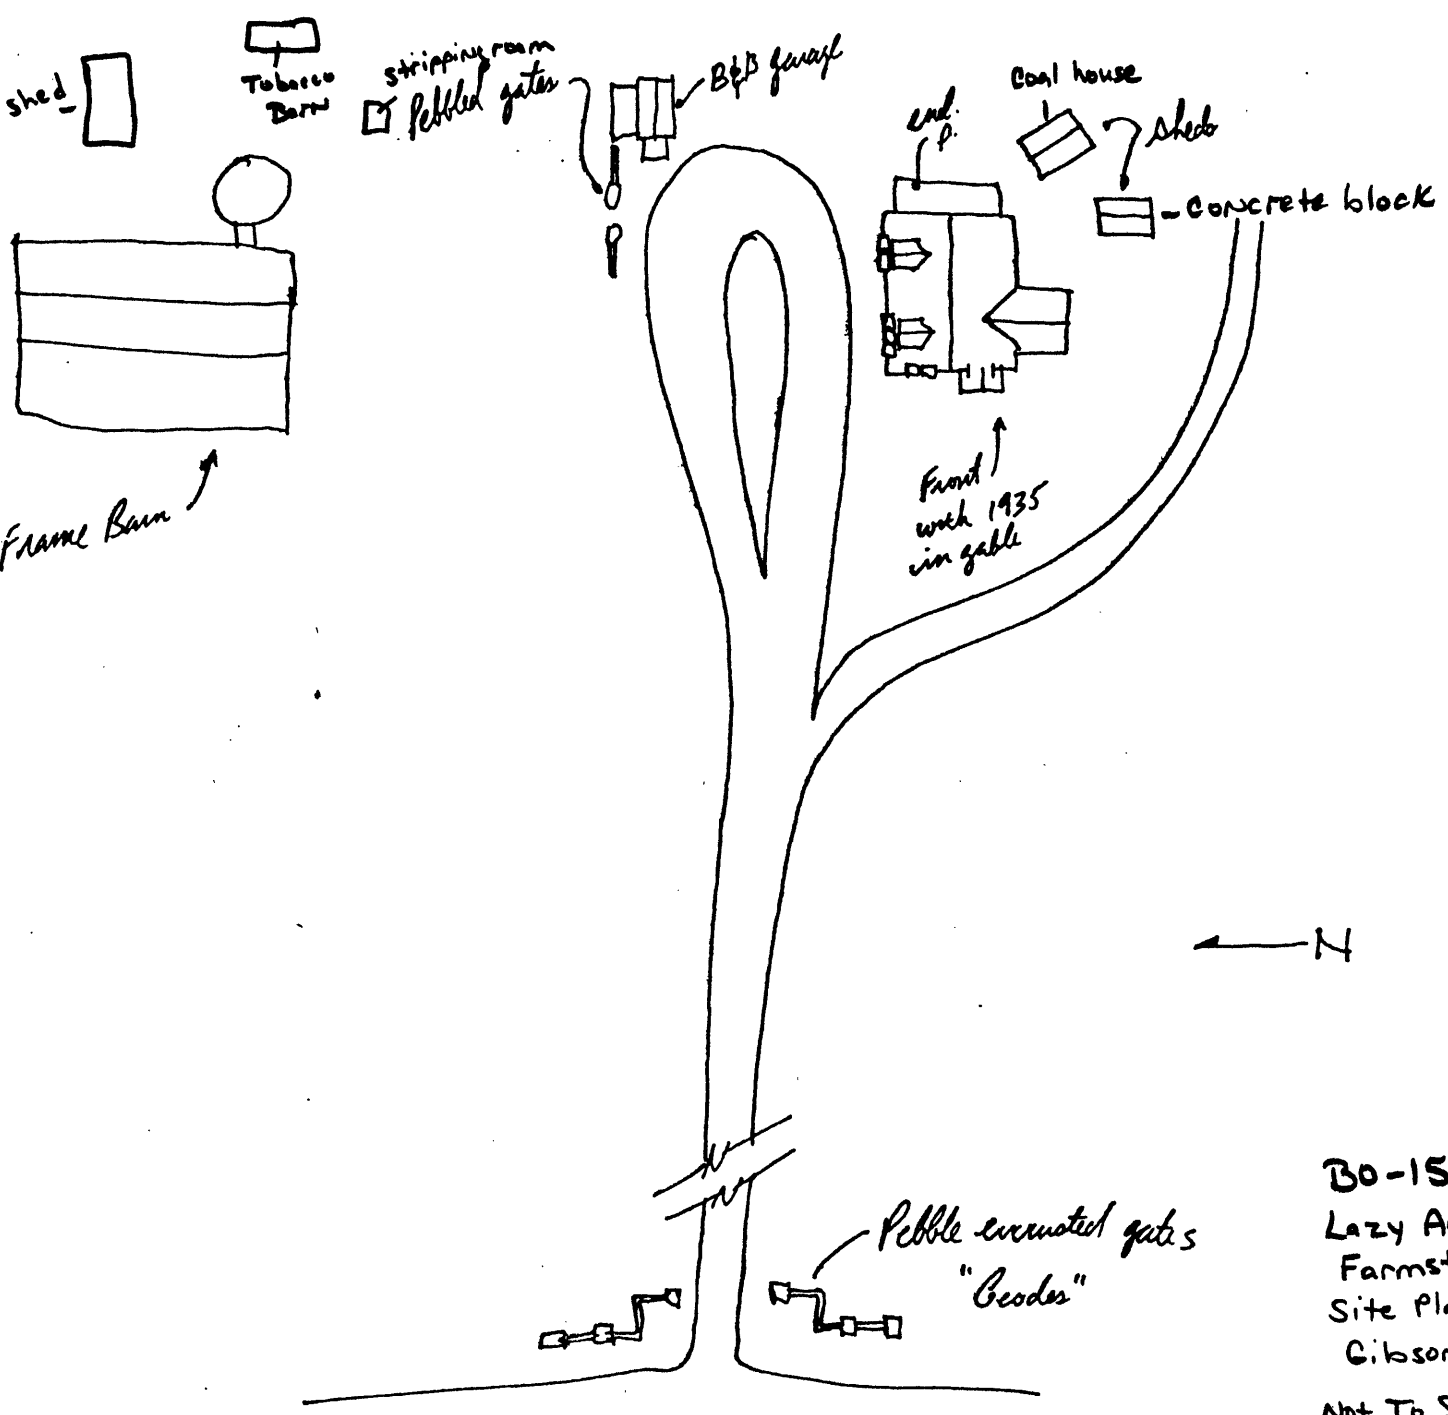 shed
Tobacco
Barn
stripping room
Pebbled gates
B&B garage
end.
p.
Coal house
sheds
- Concrete block
Frame Barn
Front
with 1935
in gable
N
Pebble encrusted gates
"Geodes"
BO-15
Lazy A
Farmst
Site Pla
Gibson
Not To S